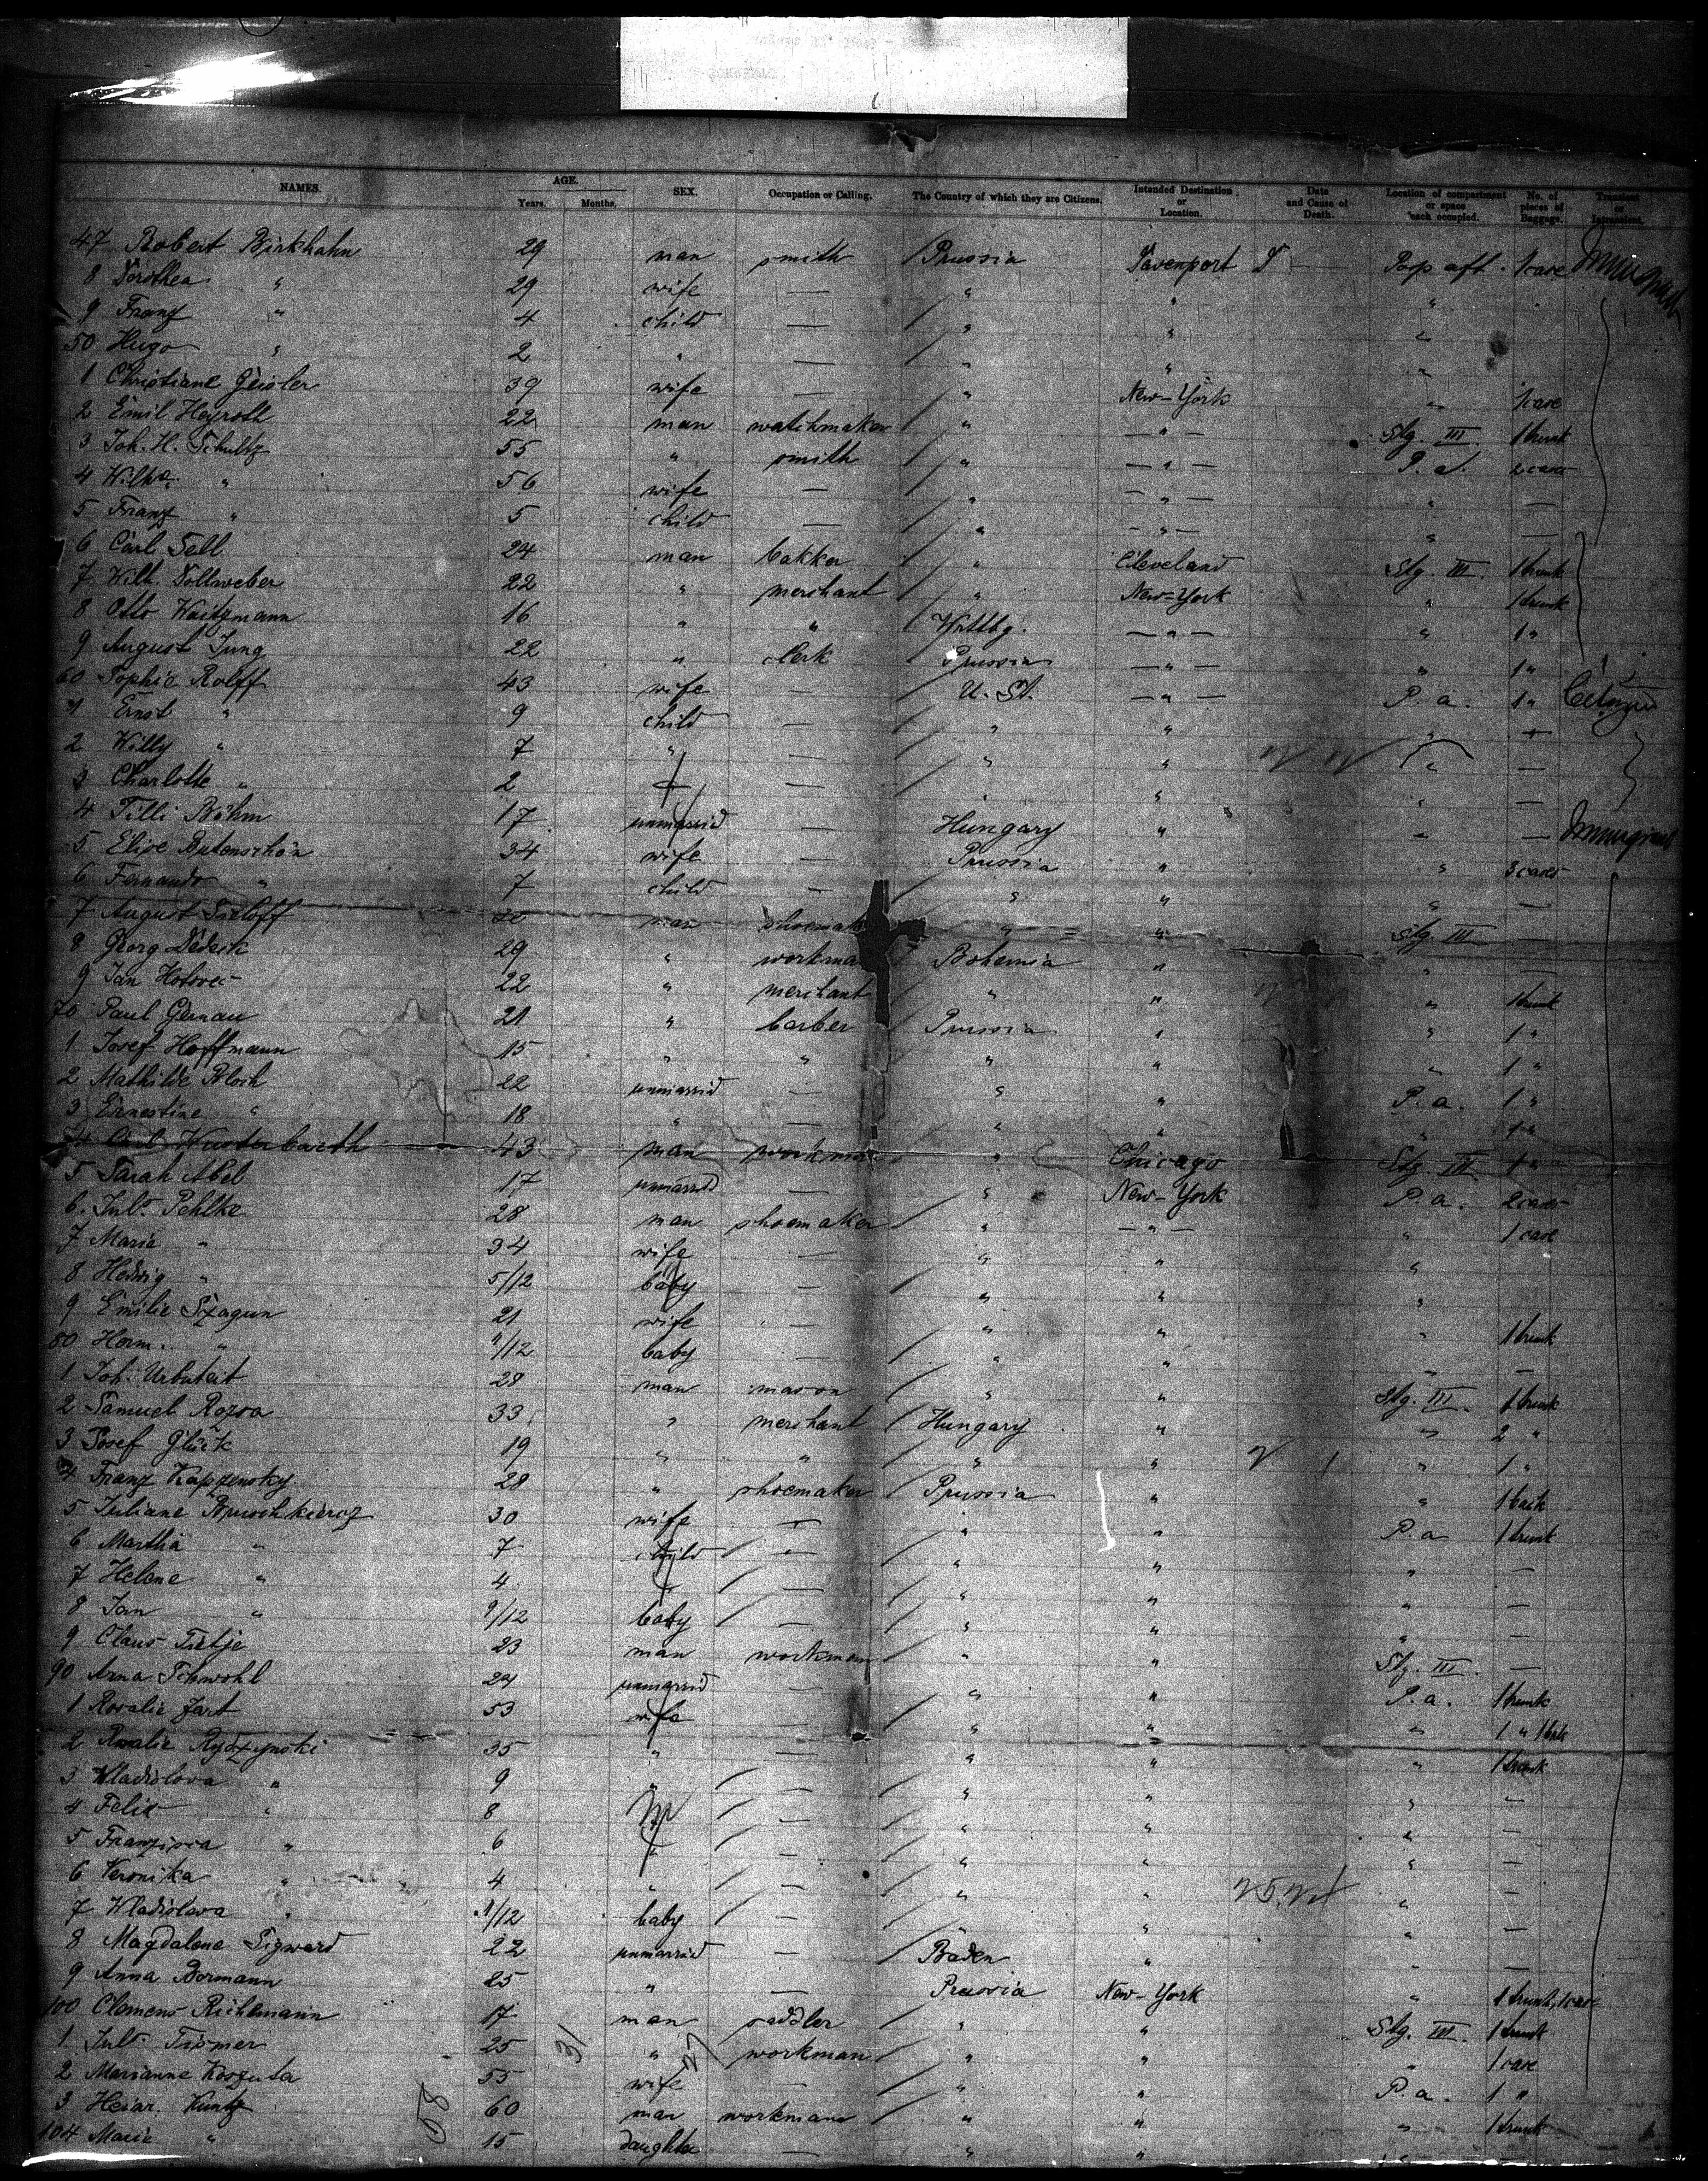 NAMES. AGE. Years. Months. SEX. Occupation or Calling. The Country of which they are Citizens. Intended Destination or Location. Date and Cause of Death. Location of compartment or space each occupied. No. of pieces of Baggage. Transient or
47 Robert Birkhahn 29 man smith Prussia Davenport Poop aft. 1 case
8 Dorothea " 29 wife — " " "
9 Franz " 4 child — " " "
50 Hugo " 2 " — " " "
1 Christiane Geisler 39 wife — " New-York " 1 case
2 Emil Heyroth 22 man watchmaker " — " — Stg. III 1 trunk
3 Joh. H. Schultz 55 " smith " — " — P. a. 2 cases
4 " 56 wife — " — " — " —
5 Franz " 5 child — " — " — " —
6 Carl Sell 24 man bakker " Cleveland Stg. III. 1 trunk
7 Wilh. Vollweber 22 " merchant " New-York " 1 trunk
8 Otto Waitzmann 16 " " Wttbg. — " — " 1 "
9 August Jung 22 " clerk Prussia — " — " 1 "
60 Sophie Rolff 43 wife — U. St. — " — P. a. 1 "
1 Ernst " 9 child — " " "
2 Willy " 7 " — " " " —
3 Charlotte " 2 — " " " —
4 Tilli Böhm 17 unmarrid — Hungary " " — Immigrant
5 Elise Butenschön 34 wife — Prussia " " 3 cases
6 Fernando " 7 child — " " " —
7 August man " " Stg. III —
8 Georg Dedeck 29 " Bohemia " " —
9 Jan 22 " merchant " " " 1 trunk
70 Paul Gernau 21 " barber Prussia " " 1 "
1 Josef Hoffmann 15 " " " " " 1 "
2 Mathilde Bloch 22 unmarrid — " " P. a. 1 "
3 Ernestine " 18 " — " " " 1 "
43 man " Chicago Stg III 1 "
5 Sarah Abel 17 unmarrid — " New-York P. a. 2 cases
6 Jul. Pehlke 28 man shoemaker " — " — " 1 case
7 Maria " 34 wife — " " "
8 Hedwig " 5/12 baby — " " "
9 Emilie Szagun 21 wife — " " " 1 trunk
80 Herm. " /12 baby — " " " —
1 Joh. Urbuteit 28 man mason " " Stg. III. 1 trunk
2 Samuel Rozsa 33 " merchant Hungary " " 2 "
3 Josef Glück 19 " " " " " 1 "
4 Franz Kapzensky 28 " shoemaker Prussia " "
5 Juliane 30 wife — " " P. a 1 trunk
6 Martha " 7 child — " " " —
7 Helene " 4 — " " " —
8 Jan " 9/12 baby — " " " —
9 Claus Tietje 23 man workman " " Stg. III. —
90 Anna Schwohl 24 unmarrid — " " P. a. 1 trunk
1 Rosalie Zart 53 wife — " " " 1 "
2 Rosalie Rydzynski 35 " — " " " 1 trunk
3 Wladislava " 9 " — " " " —
4 Felix " 8 — " " " —
5 Franzisca " 6 " — " " " —
6 Veronika " 4 " — " " "
7 Wladislava " /12 baby — " " " —
8 Magdalene Sigward 22 unmarrid — Baden " " —
9 Anna Bormann 25 " — Prussia New-York " 1 trunk, 1 case
100 Clemens Richemann 17 man saddler " " Stg. III. 1 trunk
1 Jul. 25 " workman " " " 1 case
2 Marianne Koszuta 55 wife — " " P. a. 1 "
3 Heinr. Kuntz 60 man workman " " " 1 trunk
104 Marie " 15 daughter — " "
31
58